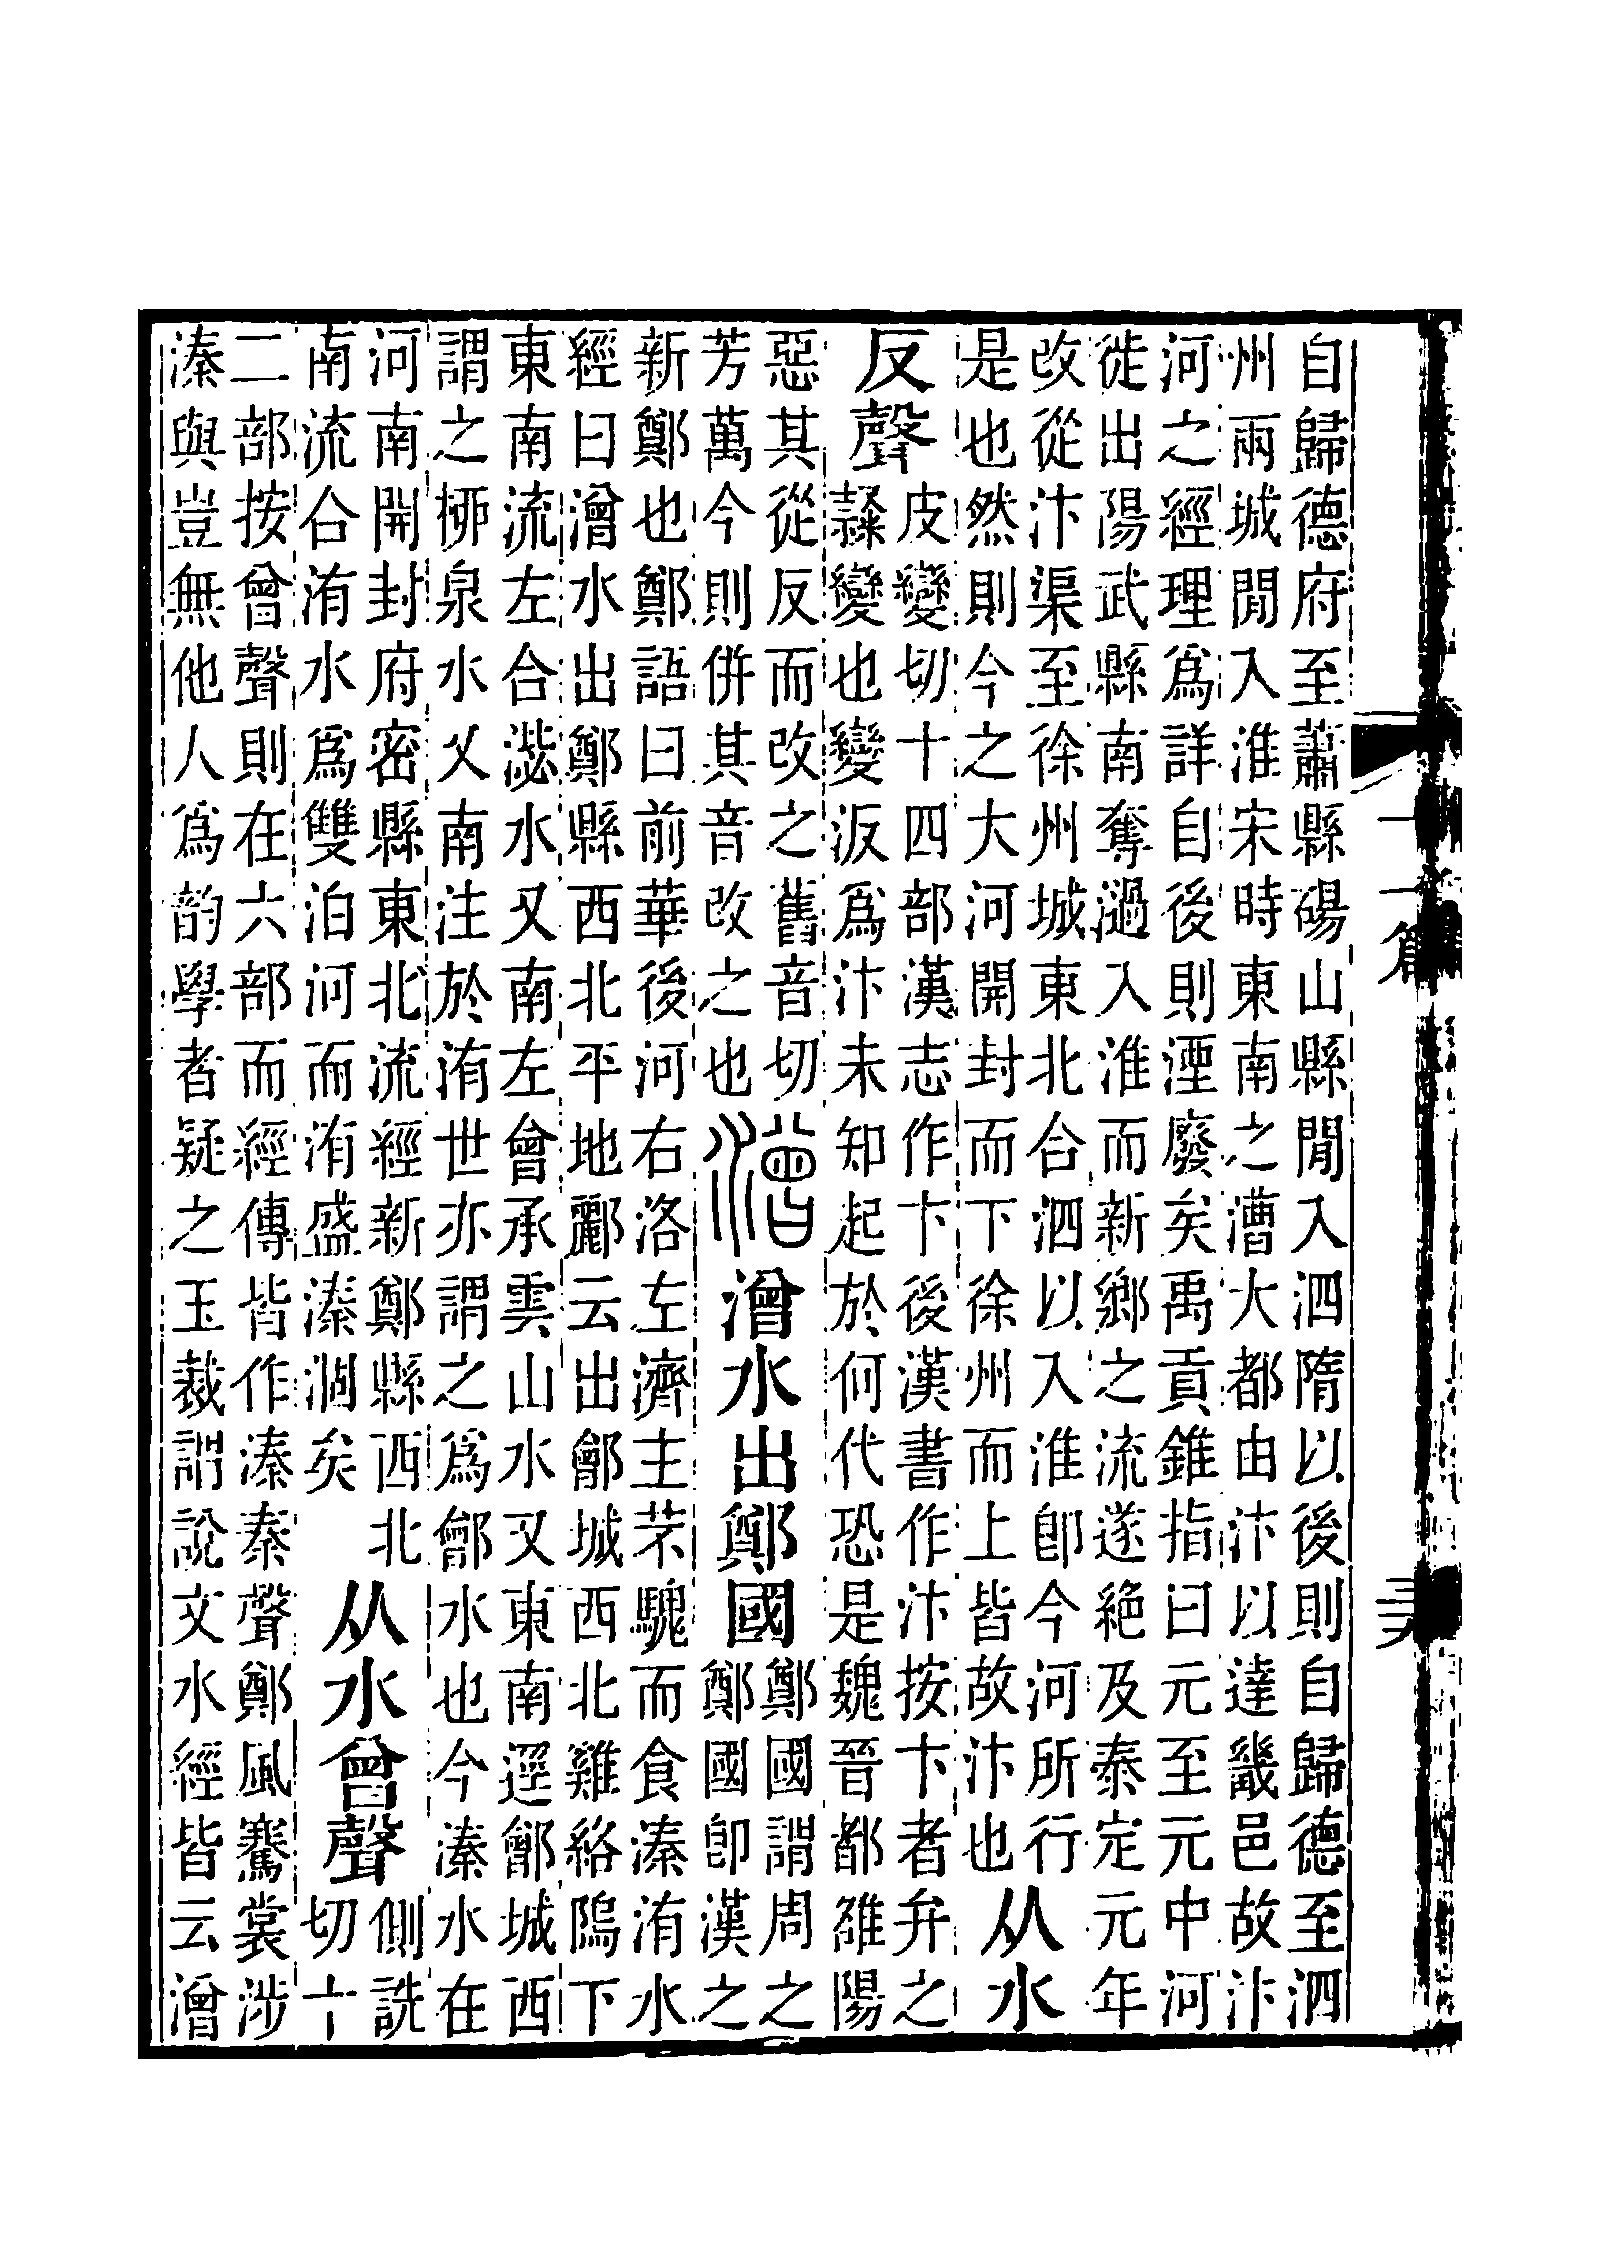 自歸德府至蕭縣碭山縣閒入泗隋以後則自歸德至泗
州兩城閒入淮宋時東南之漕大都由汴以達畿邑故汴
河之經理爲詳自後則湮廢矣禹貢錐指曰元至元中河
徙出陽武縣南奪濄入淮而新鄉之流遂絶及泰定元年
改從汴渠至徐州城東北合泗以入淮卽今河所行
是也然則今之大河開封而下徐州而上皆故汴也
从水
反聲
皮變切十四部漢志作卞後漢書作汴按卞者弁之
隸變也變汳爲汴未知起於何代恐是魏晉都雒陽
惡其從反而改之舊音切
芳萬今則併其音改之也
潧
潧水出鄭國
鄭國謂周之
鄭國卽漢之
新鄭也鄭語曰前華後河右洛左濟主芣騩而食溱洧水
經曰潧水出鄭縣西北平地酈云出鄶城西北雞絡隖下
東南流左合水又南左會承雲山水又東南逕鄶城西
謂之柳泉水乂南注於洧世亦謂之爲鄶水也今溱水在
河南開封府密縣東北流經新鄭縣西北
南流合洧水爲雙泊河而洧盛溱涸矣
从水曾聲
側詵
切十
二部按曾聲則在六部而經傳皆作溱秦聲鄭風騫裳涉
溱與豈無他人爲韵學者疑之玉裁謂說文水經皆云潧